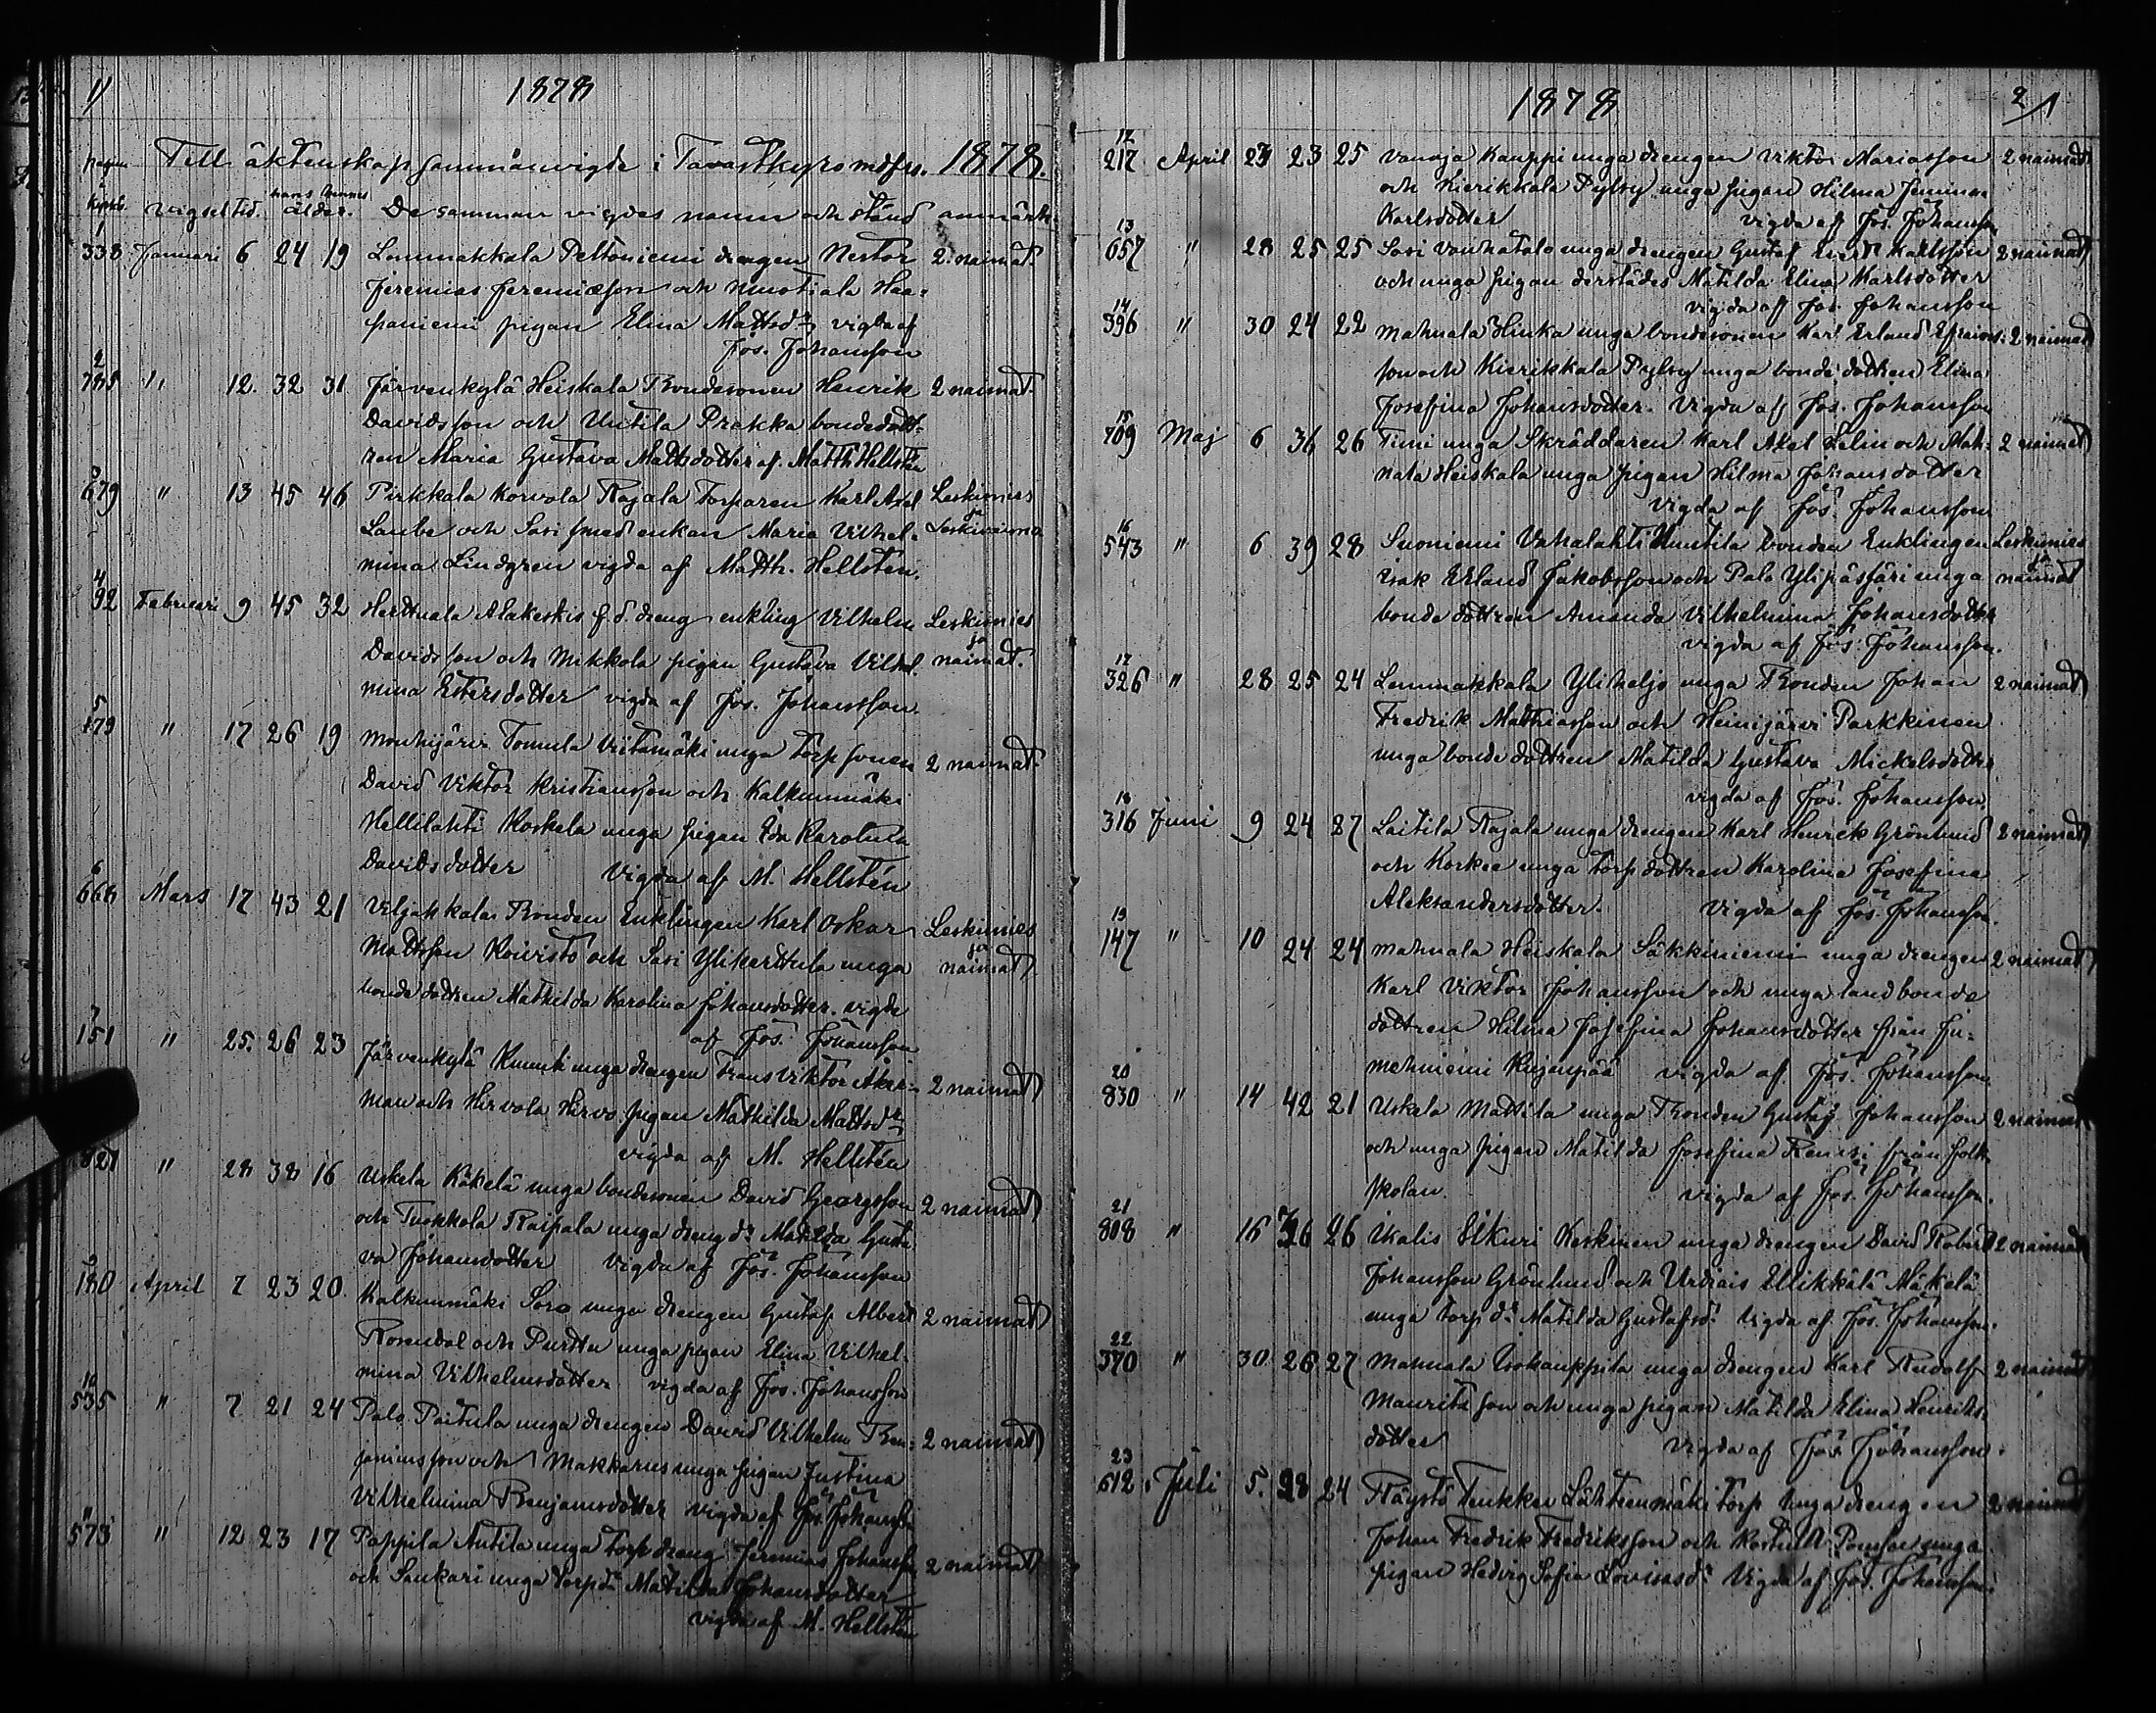 1/ 1878
Till äktenskap sammanvigde i Tavastkyro mdfrs. 1878.
pagin i kyrkb. vigsel tid. hans hennes ålder. De samman vigdes namn och stånd anmärk.
1
338 Januari 6 24 19 Lemmakkala Peltoniemi drengen Nestor 2 naimat.
Jeremias Jeremiæson och Mustiala Haa-
paniemi pigan Elina Mattsdr vigda af
Jos. Johansson
2
785 " 12. 32 31 Järvenkylä Heiskala Bondesonen Henrik 2 naimat.
Davidsson och Untila Prakka bondedott-
ren Maria Gustava Mattsdotter af. Matth Hellstén
3
679 " 13 45 46 Pirkkala Korvola Rajala Torparen Karl Axel Leskimies
Laube och Sasi smed enkan Maria Vilhel- ja Leskivaimo
mina Lindgren vigda af Matth. Hellsten.
4
92 Februari 9 45 32 Herttuala Alakeskis f.d. dreng enkling Vilhelm Leskimies
Davidsson och Mikkola pigan Gustava Vilhel- ja naimat.
mina Estersdotter vigda af Jos. Johansson.
5
179 " 17 26 19 Mouhijärvi Tomula Viitamäki unga Torpsonen 2 naimat.
David Viktor Kristiansson och Kalkunmäki
Hellilahti Koskela unga pigan Ida Karolina
Davidsdotter vigda af M. Hellstén
6
668 Mars 17 43 21 Viljakkala Bonden Enklingen Karl Oskar Leskimies
Mattsson Koivisto och Sasi Yliherttula unga ja naimat
bonde dottren Mathilda Karolina Johansdotter. vigde
af Jos. Johansson
7
151 " 25. 26 23 Järvenkylä Kuunti unga drengen Frans Viktor Åker- 2 naimat
man och Hirvola Hirvo pigan Mathilda Mattsdr
vigda af M. Hellstén
821 " 28 38 16 Uskela Käkelä unga bondesonen David Georgsson 2 naimat
och Tuokkola Raipala unga drengdr Matilda Gusta
va Johansdotter vigda af Jos. Johansson
9
180 April 7 23 20. Kalkunmäki Sora unga drengen Gustaf Albert 2 naimat
Rosendal och Purttu unga pigan Elina Vilhel-
mina Vilhelmsdotter vigda af Jos. Johansson
10
535 " 7 21 24 Palo Paitula unga drengen David Vilhelm Ben- 2 naimat
jaminsson och Makkarus unga pigan Justina
Vilhelmina Benjamsdotter vigda af Jos. Johansson
11
573 " 12 23 17 Pappila Antila unga torp dreng Jeremias Johansson 2 naimat
och Sankari unga torpdr Matilda Johansdotter
vigda af M. Hellstén
1878 2/1
12
217 April 23 23 25 Vanaja Kauppi unga drengen Viktor Mariasson 2 naimat
och Kierikkala Pylsy unga pigan Hilma Jemina
Karlsdotter vigda af Jos. Johansson
13
657 " 28 25 25 Sasi Vanhatalo unga drengen Gustaf Evert Karlsson 2 naimat
och unga pigan derstädes Matilda Elina Karlsdotter
vigda af Jos. Johansson
14
396 " 30 24 22 Mahnala Hinka unga bondesonen Karl Erland Efraims- 2 naimat
son och Kierikkala Pylsy unga bonde dottren Elina
Josefina Johansdotter. Vigda af Jos. Johansson
15
709 Maj 6 36 26 Timi unga Skräddaren Karl Axel Selin och Mah- 2 naimat
nala Heiskala unga pigan Hilma Johansdotter
vigda af Jos. Johansson
16
543 " 6 39 28 Suoniemi Vahalahti Uuntila bonden Enklingen Leskimies
Isak Erland Jakobsson och Palo Ylipässäri unga ja naimat
bonde dottren Amanda Vilhelmina Johansdotter
vigda af Jos. Johansson.
17
326 " 28 25 24 Lemmakkala Ylihaljo unga Bonden Johan 2 naimat
Fredrik Matthiasson och Heinijärvi Parkkinen
unga bonde dottren Matilda Gustava Mickelsdotter
vigda af Jos. Johansson
18
316 Juni 9 24 27 Laitila Rajala unga drengen Karl Henrik Grönlund 2 naimat
och Korkee unga torp dottren Karolina Josefina
Aleksandersdotter. vigda af Jos. Johansson.
19
147 " 10 24 24 Mahnala Heiskala Säkkiniemi unga drengen 2 naimat
Karl Viktor Johansson och unga landbonde
dottren Hilma Josefina Johansdotter från Ju-
mehniemi Kujanpää vigda af Jos. Johansson
20
830 " 14 42 21 Uskela Mattila unga Bonden Gustaf Johansson 2 naimat
och unga pigan Matilda Josefina Remsi från folk
skolan. vigda af Jos. Johansson.
21
808 " 16 36 26 Ikalis Sikuri Keskinen unga drengen David Robert 2 naimat
Johansson Grönlund och Urdiais Ulikkälä Mäkelä
unga torp dr Matilda Gustafsdr Vigda af Jos. Johansson.
22
370 " 30 26 27 Mahnala Isokauppila unga drengen Karl Rudolf 2 naimat
Mauritsson och unga pigan Matilda Elina Henriks
dotter vigda af Jos. Johansson.
23
612 Juli 5. 28 24 Räystö Tenkka Lähteenmäki torp unga drengen 2 naimat
Johan Fredrik Fredriksson och unga
pigan Hedvig Sofia Lovisasdr Vigda af Jos. Johansson